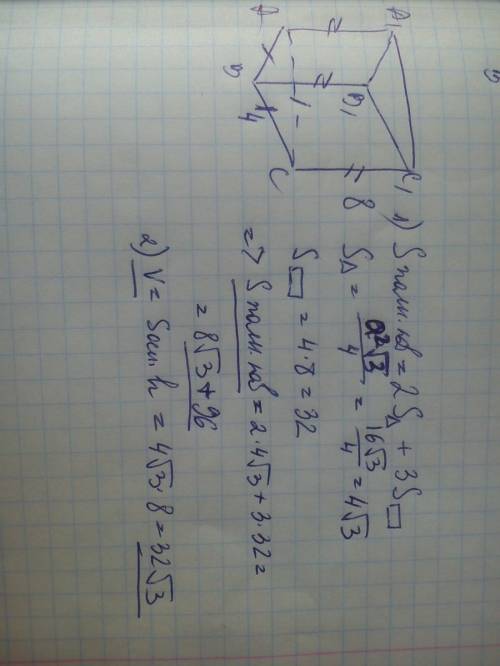 A
A₁
B
B₁
4
C
C₁
8
1) Sполн.пов = 2S△ + 3S▭
S△ = a²√3/4 = 16√3/4 = 4√3
S▭ = 4·8 = 32
=> Sполн.пов = 2·4√3 + 3·32 =
= 8√3 + 96
2) V = Sосн.h = 4√3·8 = 32√3